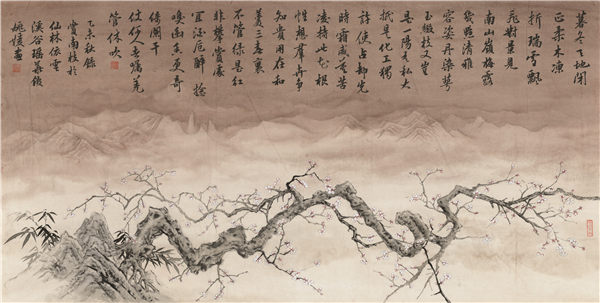 暮冬天地閉
正柔木凍
折瑞雪飄
飛對景見
南山嶺梅露
幾點清雅
容姿丹染萼
玉綴枝又豈
是一陽有私大
抵是化工獨
許使占却先
時霜威莫苦
凌持此花根
性想群卉爭
知貴用在和
羹三春裏
不管綠是紅
非攀賞處
宜酒卮醉捻
嗅幽香更奇
倚闌干
仗何人去囑羌
管休吹
乙未秋錄
賞南枝於
仙林依雲
溪谷瑤華
姚媛畫